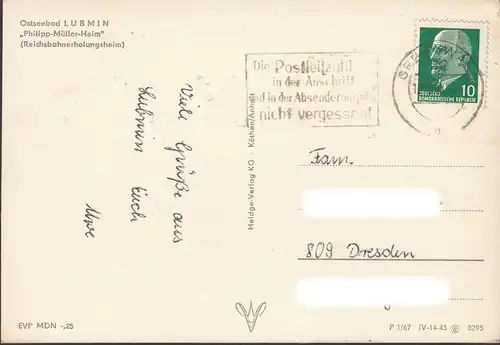 Ostseebad LUBMIN
„Philipp-Müller-Heim"
(Reichsbahnerholungsheim)
Die Postleitzahl
in der Anschrift
und in der Absenderangabe
nicht vergessen!
DEUTSCHE
DEMOKRATISCHE REPUBLIK
10
Viele Grüße aus
Lubmin
Euch
Uwe
Heldge-Verlag KG · Köthen/Anhalt
Fam.
809 Dresden
EVP MDN -,25
P 1/67 IV-14-45 8295